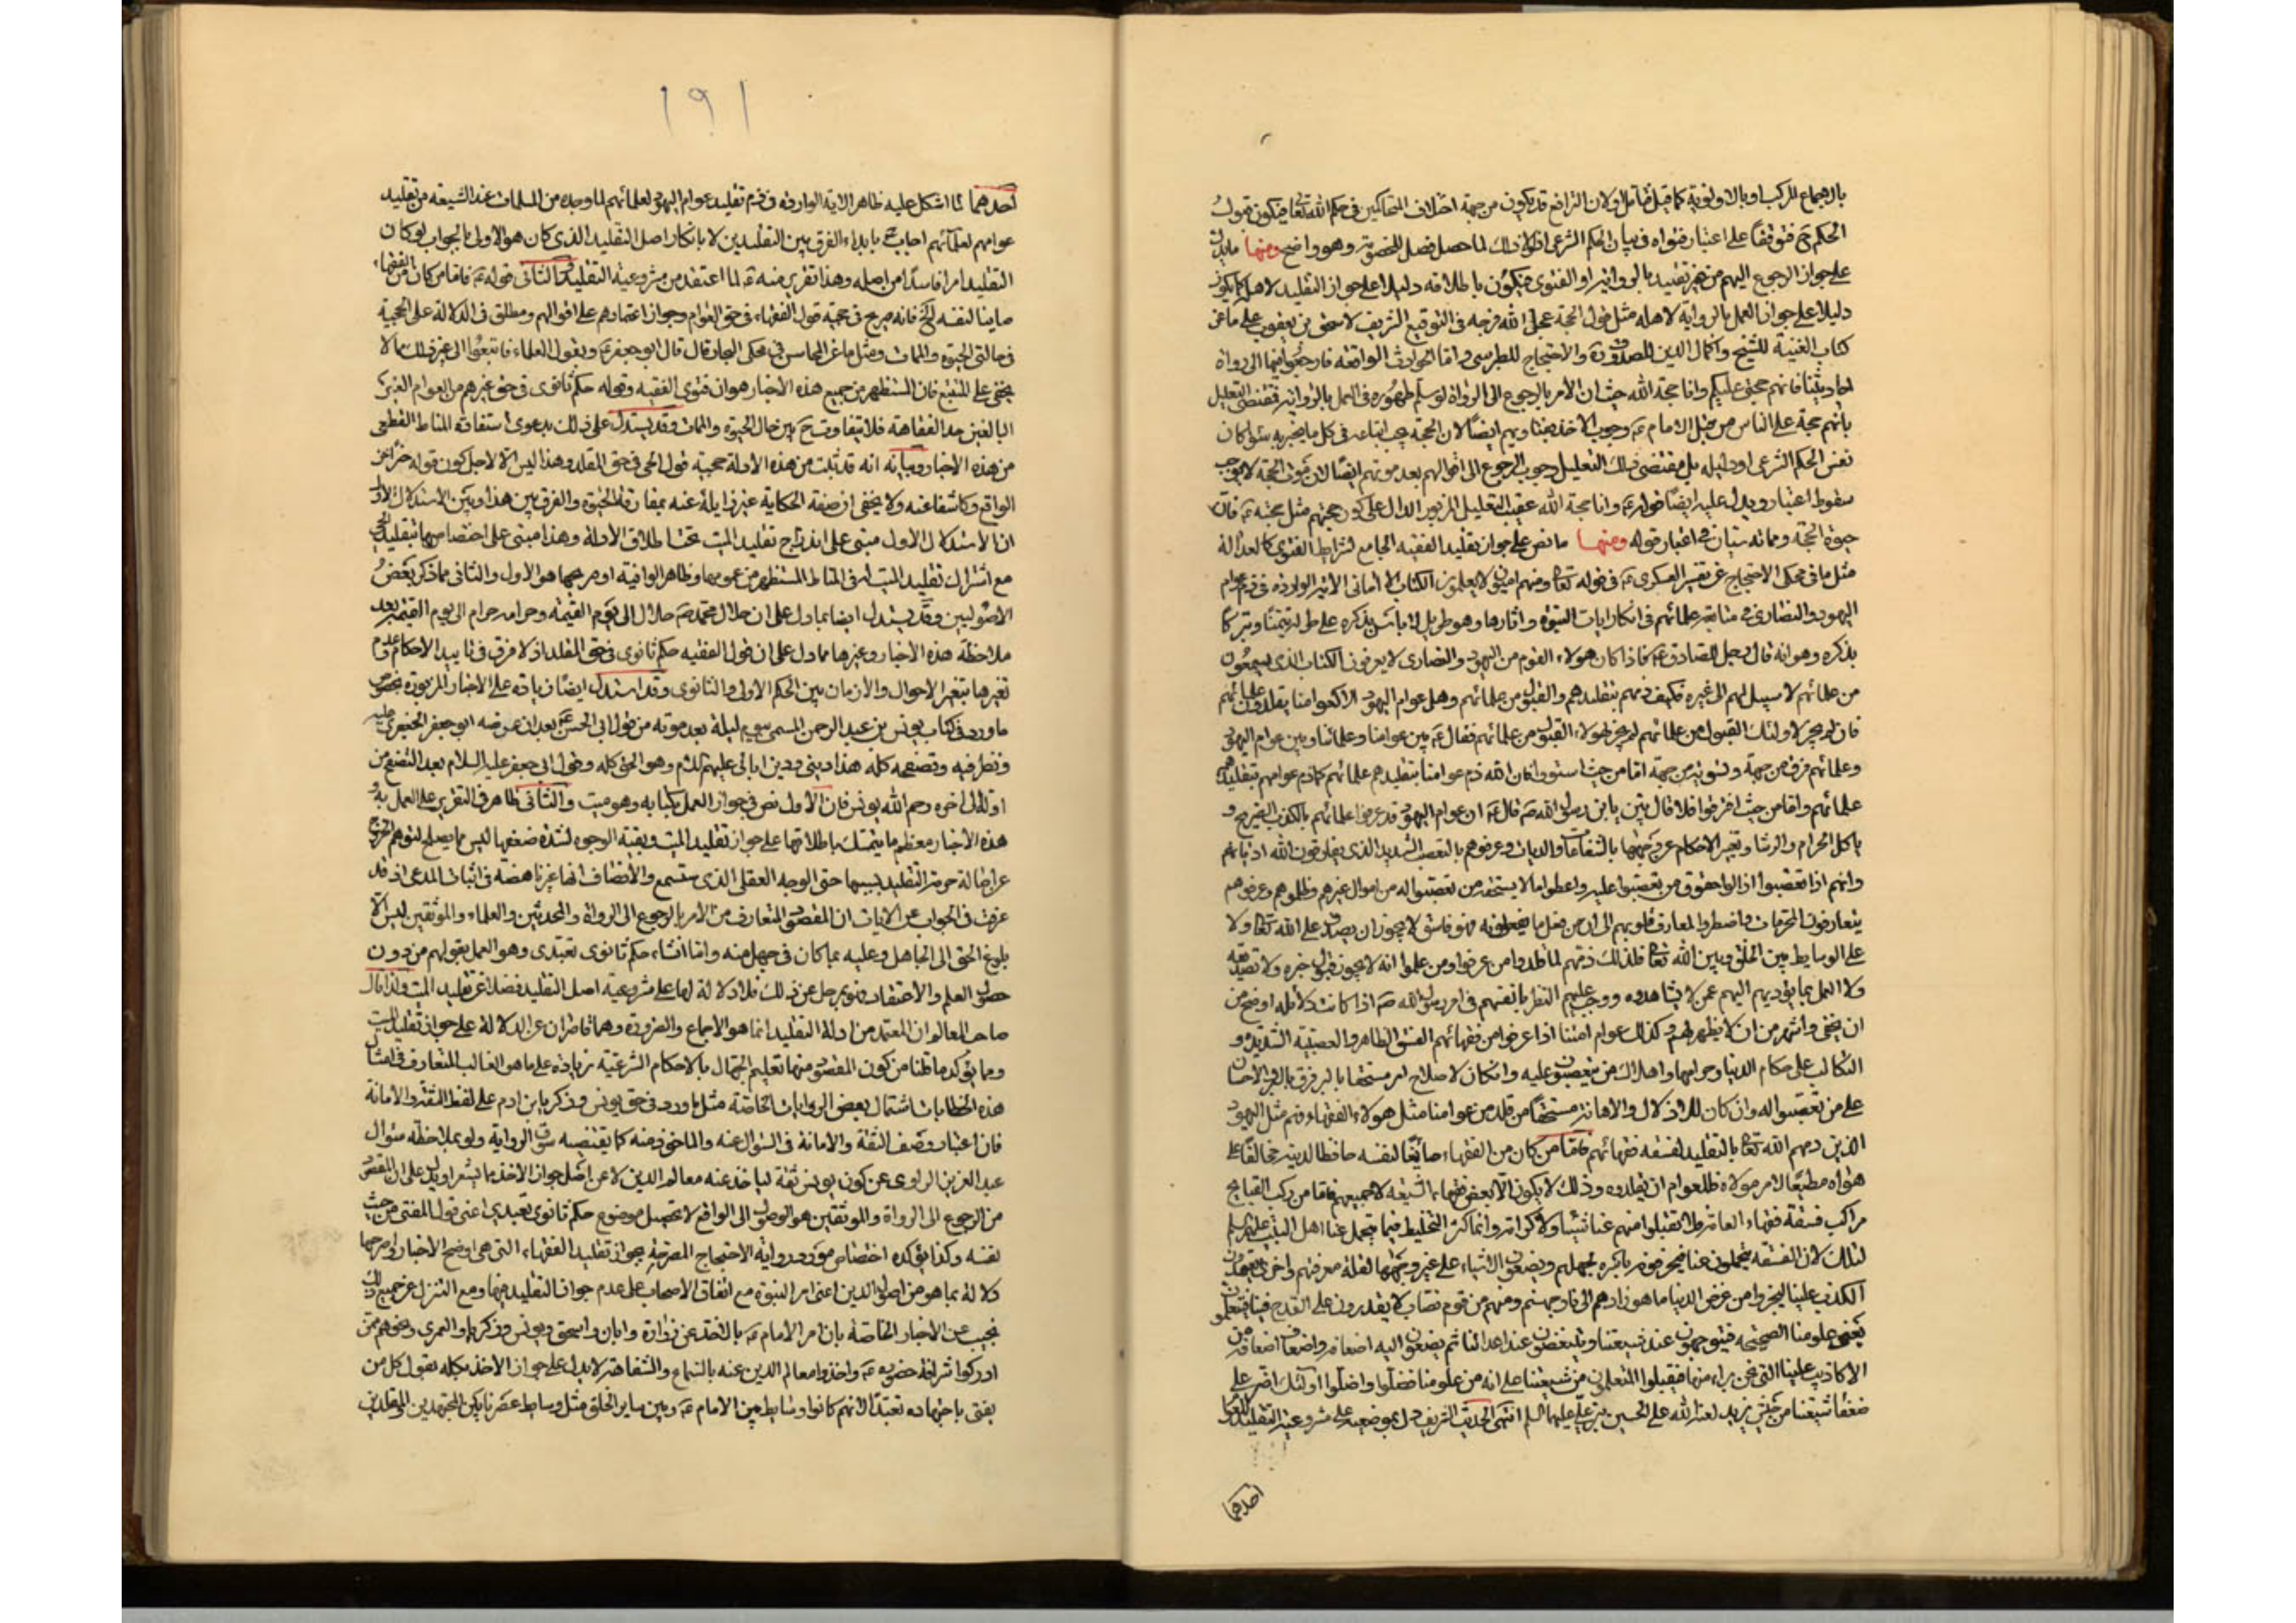 بالاجماع المركب او بالاولوية كما قيل فتامل ولان الترافع قد يكون من جهة اختلاف المتحاكمين في حكم الله تعالى فيكون قبول
الحكم ح متوقفا على اعتبار فتواه في بيان الحكم الشرعي اذ لولا ذلك لما حصل فصل الخصومة وهو واضح ومنها ما يدل
على جواز الرجوع اليهم من غير تقييد بالرواية او الفتوى فيكون باطلاقه دليلا على جواز التقليد لاهله كما يكون
دليلا على جواز العمل بالرواية لاهله مثل قول الحجة عجل الله فرجه في التوقيع الشريف لاسحق بن يعقوب على ما عن
كتاب الغيبة للشيخ واكمال الدين للصدوق والاحتجاج للطبرسي واما الحوادث الواقعة فارجعوا فيها الى رواة
احاديثنا فانهم حجتي عليكم وانا حجة الله حيث ان الامر بالرجوع الى الرواة لو سلم ظهوره في العمل بالرواية فمقتضى التعليل
بانهم حجة على الناس من قبل الامام ع وجوب الاخذ بفتاويهم ايضا لان الحجة يجب اتباعه في كل ما يخبر به سواء كان
نفس الحكم الشرعي او دليله بل مقتضى ذلك التعليل وجوب الرجوع الى اقوالهم بعد موتهم ايضا لان موت الحجة لا يوجب
سقوط اعتباره ويدل عليه ايضا قوله ع وانا حجة الله عقيب التعليل المزبور الدال على كون حجيتهم مثل حجيته ع فان
حيوة الحجة ومماته سيان في اعتبار قوله ومنها ما نص على جواز تقليد الفقيه الجامع لشرائط الفتوى كالعدالة
مثل ما في محكي الاحتجاج عن تفسير العسكري ع في قوله تعالى ومنهم اميون لا يعلمون الكتاب الا اماني الاية الواردة في ذم عوام
اليهود والنصارى في متابعة علمائهم في انكار ايات النبوة واثارها وهو طويل لا باس بذكره على طوله تيمنا وتبركا
بذكره وهو انه قال رجل للصادق ع فاذا كان هولاء القوم من اليهود والنصارى لا يعرفون الكتاب الذي يسمعون
من علمائهم لا سبيل لهم الى غيره فكيف ذمهم بتقليدهم والقبول من علمائهم وهل عوام اليهود الا كعوامنا يقلدون علمائهم
فان لم يجز لاولئك القبول من علمائهم لم يجز لهولاء القبول من علمائهم فقال ع بين عوامنا وعلمائنا وبين عوام اليهود
وعلمائهم فرق من جهة وتسوية من جهة اما من حيث استووا فان الله ذم عوامنا بتقليدهم علمائهم كما ذم عوامهم بتقليدهم
علمائهم واما من حيث افترقوا فلا قال بين يا بن رسول الله ص قال ع ان عوام اليهود قد عرفوا علمائهم بالكذب الصريح و
باكل الحرام والرشا وبتغيير الاحكام عن وجهها بالشفاعات والعنايات وعرفوهم بالتعصب الشديد الذي يفارقون الله اديانهم
وانهم اذا تعصبوا ازالوا حقوق من تعصبوا عليه واعطوا ما لا يستحقه من تعصبوا له من اموال غيرهم وظلموهم وعرفوهم
يتعارفون المحرمات واضطروا المعارف قلوبهم الى ان من فعل ما يفعلونه فهو فاسق لا يجوز ان يصدق على الله تعالى ولا
على الوسايط بين الخلق وبين الله تعالى فلذلك ذمهم لما قلدوا من عرفوا ومن علموا انه لا يجوز قبول خبره ولا تصديقه
ولا العمل بما يؤديهم اليهم عمن لا يشاهدوه ووجب عليهم النظر بانفسهم في امر رسول الله ص اذا كانت دلائله اوضح من
ان يخفى واشهر من ان لا يظهر لهم وكذلك عوام امتنا اذا عرفوا من فقهائهم الفسق الظاهر والعصبية الشديدة و
التكالب على حكام الدنيا وحرامها واهلاك من يتعصبون عليه وان كان لاصلاح امره مستحقا بالترفرق بالبر والاحسان
على من تعصبوا له وان كان للاذلال والاهانة مستحقا من قلد من عوامنا مثل هولاء الفقهاء فهم مثل اليهود
الذين ذمهم الله تعالى بالتقليد لفسقة فقهائهم فاما من كان من الفقهاء صائنا لنفسه حافظا لدينه مخالفا على
هواه مطيعا لامر مولاه فللعوام ان يقلدوه وذلك لا يكون الا بعض فقهاء الشيعة لا جميعهم فاما من ركب القبايح
مراكب فسقة فقهاء العامة فلا تقبلوا منهم عنا شيئا ولا كرامة وانما كثر التخليط فيما يتحمل عنا اهل البيت عليهم السلم
لذلك لان الفسقة يتحملون عنا فيحرفونه باسره بجهلهم ويضعون الاشياء على غير وجهها لقلة معرفتهم واخرى يتعمدون
الكذب علينا ليجروا من عرض الدنيا ما هو زادهم الى نار جهنم ومنهم من قوم نصاب لا يقدرون على القدح فينا فيتعلمون
بعض علومنا الصحيحة فيتوجهون عند شيعتنا وينتقصون عند اعدائنا ثم يضعون اليه اضعافه واضعاف اضعافه من
الاكاذيب علينا التي نحن براء منها فيقبلوا المستسلمون من شيعتنا على انه من علومنا فضلوا واضلوا اولئك اضر على
ضعفاء شيعتنا من جيش يزيد لعنه الله على الحسين بن علي عليهما السلم انتهى الحديث الشريف دل بموضعيه على مشروعية التقليد للعوام
احدهما
١٩١
احدهما لما اشكل عليه ظاهر الاية الواردة في ذم تقليد عوام اليهود لعلمائهم لما وجده من المسلمات عند الشيعة من تقليد
عوامهم لعلمائهم اجاب ع بابداء الفرق بين التقليدين لا بانكار اصل التقليد الذي كان هو الاولى بالجواب لو كان
التقليد امرا فاسدا من اصله وهذا تقرير منه ع لما اعتقده من مشروعية التقليد والثاني قوله ع فاما من كان من الفقهاء
صاينا لنفسه الخ فانه صريح في حجية قول الفقهاء في حق العوام وجواز اعتمادهم على اقوالهم ومطلق في الدلالة على الحجية
في حالتي الحيوة والممات ومثل ما عن المحاسن في محكي البحار قال قال ابو جعفر ع ويقول العلماء فاتبعوا الى غير ذلك مما لا
يخفى على المتتبع فان المستظهر من جميع هذه الاخبار هو ان فتوى الفقيه وقوله حكم ثانوي في حق غيرهم من العوام الغير
البالغين حد الفقاهة فلا يتفاوت ح بين حال الحيوة والممات وقد يستدل على ذلك بدعوى استفادة المناط القطعي
من هذه الاخبار وبيانه انه قد ثبت من هذه الادلة حجية قول الحي في حق المقلد وهذا ليس الا لاجل كون قوله خبرا عن
الواقع وكاشفا عنه ولا يخفى ان صفة الحكاية غير زايلة عنه بمفارقة الحيوة والفرق بين هذا وبين الاستدلال الاول
ان الاستدلال الاول مبني على اندراج تقليد الميت تحت اطلاق الادلة وهذا مبني على اختصاصها بتقليد الحي
مع اشتراك تقليد الميت له في المناط المستظهر من عمومها وظاهر الوافية او صريحها هو الاول والثاني مما ذكر بعض
الاصوليين وقد يستدل ايضا بما دل على ان حلال محمد ص حلال الى يوم القيمة وحرامه حرام الى يوم القيمة بعد
ملاحظة هذه الاخبار وغيرها مما دل على ان قول الفقيه حكم ثانوي في حق المقلد اذ لا فرق في تابيد الاحكام وعدم
تغيرها بتغير الاحوال والازمان بين الحكم الاولي والثانوي وقد استدل ايضا زيادة على الاخبار المزبورة بخصوص
ما ورد في كتاب يونس بن عبد الرحمن المسمى بيوم وليلة بعد موته من قول ابي الحسن ع بعد ان عرضه ابو جعفر الجعفري عليه
ونظر فيه وتصفحه كله هذا ديني ودين ابائي عليهم السلم وهو الحق كله وقول ابي جعفر عليه السلام بعد التصفح من
اوله الى اخره رحم الله يونس فان الاول نص في جواز العمل بكتابه وهو ميت والثاني ظاهر في التقرير على العمل به و
هذه الاخبار معظم ما يتمسك باطلاقها على جواز تقليد الميت وبقية الوجوه لشدة ضعفها ليس مما يصلح لتوهم الخروج
عن اصالة حرمة التقليد بسببها حتى الوجه العقلي الذي ستسمع والانصاف انها غير ناهضة في اثبات المدعى اذ قد
عرفت في الجواب عن الايات ان المقصود المتعارف من الامر بالرجوع الى الرواة والمحدثين والعلماء والموثقين ليس الا
بلوغ الحق الى الجاهل وعلمه بما كان في جهل منه واما انشاء حكم ثانوي تعبدي وهو العمل بقولهم من دون
حصول العلم والاعتقاد فهو بمعزل عن ذلك فلا دلالة لها على مشروعية اصل التقليد فضلا عن تقليد الميت ولذا قال
صاحب المعالم ان المعتمد من ادلة التقليد انما هو الاجماع والضرورة وهما قاصران عن الدلالة على جواز تقليد الميت
ومما يؤكد ما قلنا من كون المقصود منها تعليم الجهال بالاحكام الشرعية زيادة على ما هو الغالب المتعارف في امثال
هذه الخطابات اشتمال بعض الروايات الخاصة مثل ما ورد في حق يونس وزكريا بن ادم على لفظ الثقة والامانة
فان اعتبار وصف الثقة والامانة في السؤال عنه والماخوذ منه كما يقتضيه سوق الرواية ولو بملاحظة سؤال
عبد العزيز الراوي عن كون يونس ثقة لياخذ عنه معالم الدين لا عن اصل جواز الاخذ مما يشعر او يدل على ان المقصود
من الرجوع الى الرواة والموثقين هو الوصول الى الواقع لا تحصيل موضوع حكم ثانوي تعبدي اعني قول المفتي من حيث
نفسه وكذا يؤكده اختصاص مورد رواية الاحتجاج المصرحة بجواز تقليد الفقهاء التي هي اوضح الاخبار واصرحها
دلالة بما هو من اصول الدين اعني امر النبوة مع اتفاق الاصحاب على عدم جواز التقليد فيها ومع التنزل عن جميع ذلك
نجيب عن الاخبار الخاصة بان امر الامام ع بالاخذ عن زرارة وابان واسحق ويونس وزكريا والعمري وغيرهم ممن
ادركوا شرافة حضوره ع واخذوا معالم الدين عنه بالسماع والشفاهة لا يدل على جواز الاخذ بكله بقول كل من
يفتي باجتهاده تعبدا لانهم كانوا وسايط بين الامام ع وبين ساير الخلق مثل وسايط عصرنا بين المجتهدين والمقلدين